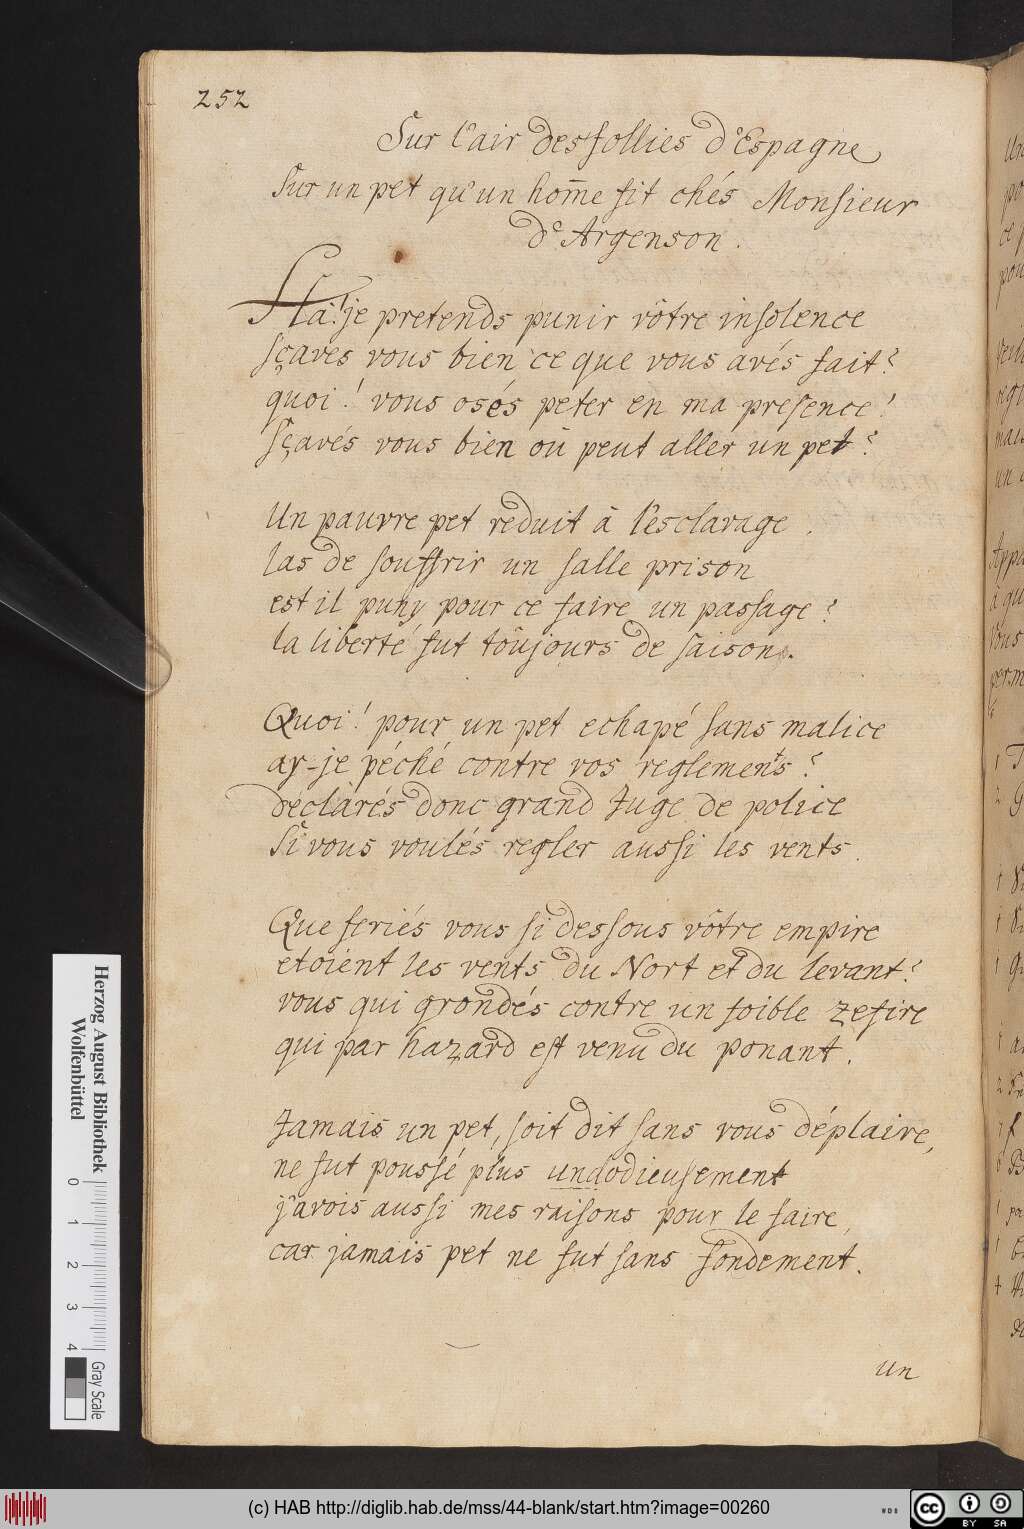 252
Sur l'air des follies d'Espagne
Sur un pet qu'un hom̄e fit chés Monsieur
d'Argenson.
Ha! je pretends punir vôtre insolence
sçaves vous bien ce que vous avés fait?
quoi! vous osés péter en ma presence!
Sçavés vous bien où peut aller un pet?
Un pauvre pet reduit à l'esclavage.
las de souffrir un salle prison
est il puny pour ce faire un passage?
la liberté fut toûjours de saison.
Quoi! pour un pet echapé sans malice
ay-je péché contre vos reglements?
déclarés donc grand Juge de police
Si vous voulés regler aussi les vents.
Que feriés vous si dessous vôtre empire
etoient les vents du Nort et du levant?
vous qui grondés contre un foible zefire
qui par hazard est venu du ponant.
Jamais un pet, soit dit sans vous déplaire,
ne fut poussé plus undodieusement
j'avois aussi mes raisons pour le faire,
car jamais pet ne fut sans fondement.
un
Herzog August Bibliothek
Wolfenbüttel
0 1 2 3 4
Gray Scale
(c) HAB http://diglib.hab.de/mss/44-blank/start.htm?image=00260
WDB
cc BY SA